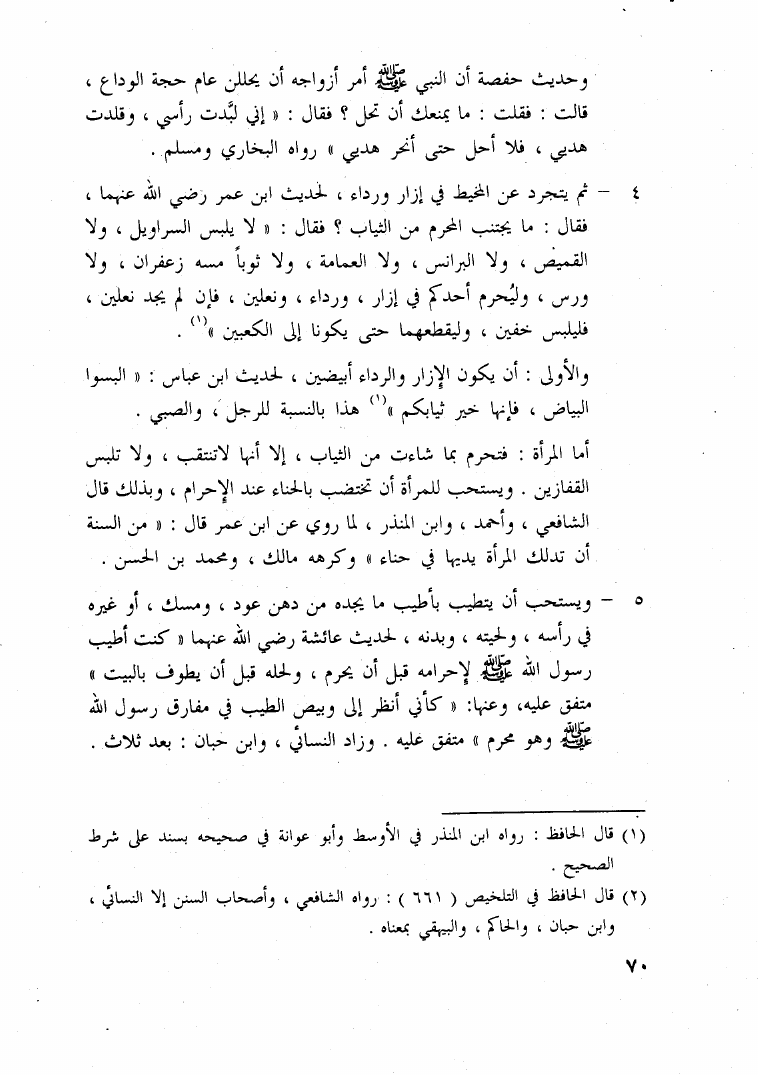 وحديث حفصة أن النبي ﷺ أمر أزواجه أن يحللن عام حجة الوداع ،
قالت : فقلت : ما يمنعك أن تحل ؟ فقال : « إني لبَّدت رأسي ، وقلدت
هديي ، فلا أحل حتى أنحر هديي » رواه البخاري ومسلم .
٤ – ثم يتجرد عن المخيط في إزار ورداء ، لحديث ابن عمر رضي الله عنهما ،
فقال : ما يجتنب المحرم من الثياب ؟ فقال : « لا يلبس السراويل ، ولا
القميص ، ولا البرانس ، ولا العمامة ، ولا ثوباً مسه زعفران ، ولا
ورس ، وليُحرم أحدكم في إزار ، ورداء ، ونعلين ، فإن لم يجد نعلين ،
فليلبس خفين ، وليقطعهما حتى يكونا إلى الكعبين »(١) .
والأولى : أن يكون الإزار والرداء أبيضين ، لحديث ابن عباس : « البسوا
البياض ، فإنها خير ثيابكم »(١) هذا بالنسبة للرجل ، والصبي .
أما المرأة : فتحرم بما شاءت من الثياب ، إلا أنها لاتنتقب ، ولا تلبس
القفازين . ويستحب للمرأة أن تختضب بالحناء عند الإحرام ، وبذلك قال
الشافعي ، وأحمد ، وابن المنذر ، لما روي عن ابن عمر قال : « من السنة
أن تدلك المرأة يديها في حناء » وكرهه مالك ، ومحمد بن الحسن .
٥ – ويستحب أن يتطيب بأطيب ما يجده من دهن عود ، ومسك ، أو غيره
في رأسه ، ولحيته ، وبدنه ، لحديث عائشة رضي الله عنهما « كنت أطيب
رسول الله ﷺ لإحرامه قبل أن يحرم ، ولحله قبل أن يطوف بالبيت »
متفق عليه، وعنها: « كأني أنظر إلى وبيص الطيب في مفارق رسول الله
ﷺ وهو محرم » متفق عليه . وزاد النسائي ، وابن حبان : بعد ثلاث .
(١) قال الحافظ : رواه ابن المنذر في الأوسط وأبو عوانة في صحيحه بسند على شرط
الصحيح .
(٢) قال الحافظ في التلخيص ( ٦٦١ ) : رواه الشافعي ، وأصحاب السنن إلا النسائي ،
وابن حبان ، والحاكم ، والبيهقي بمعناه .
٧٠